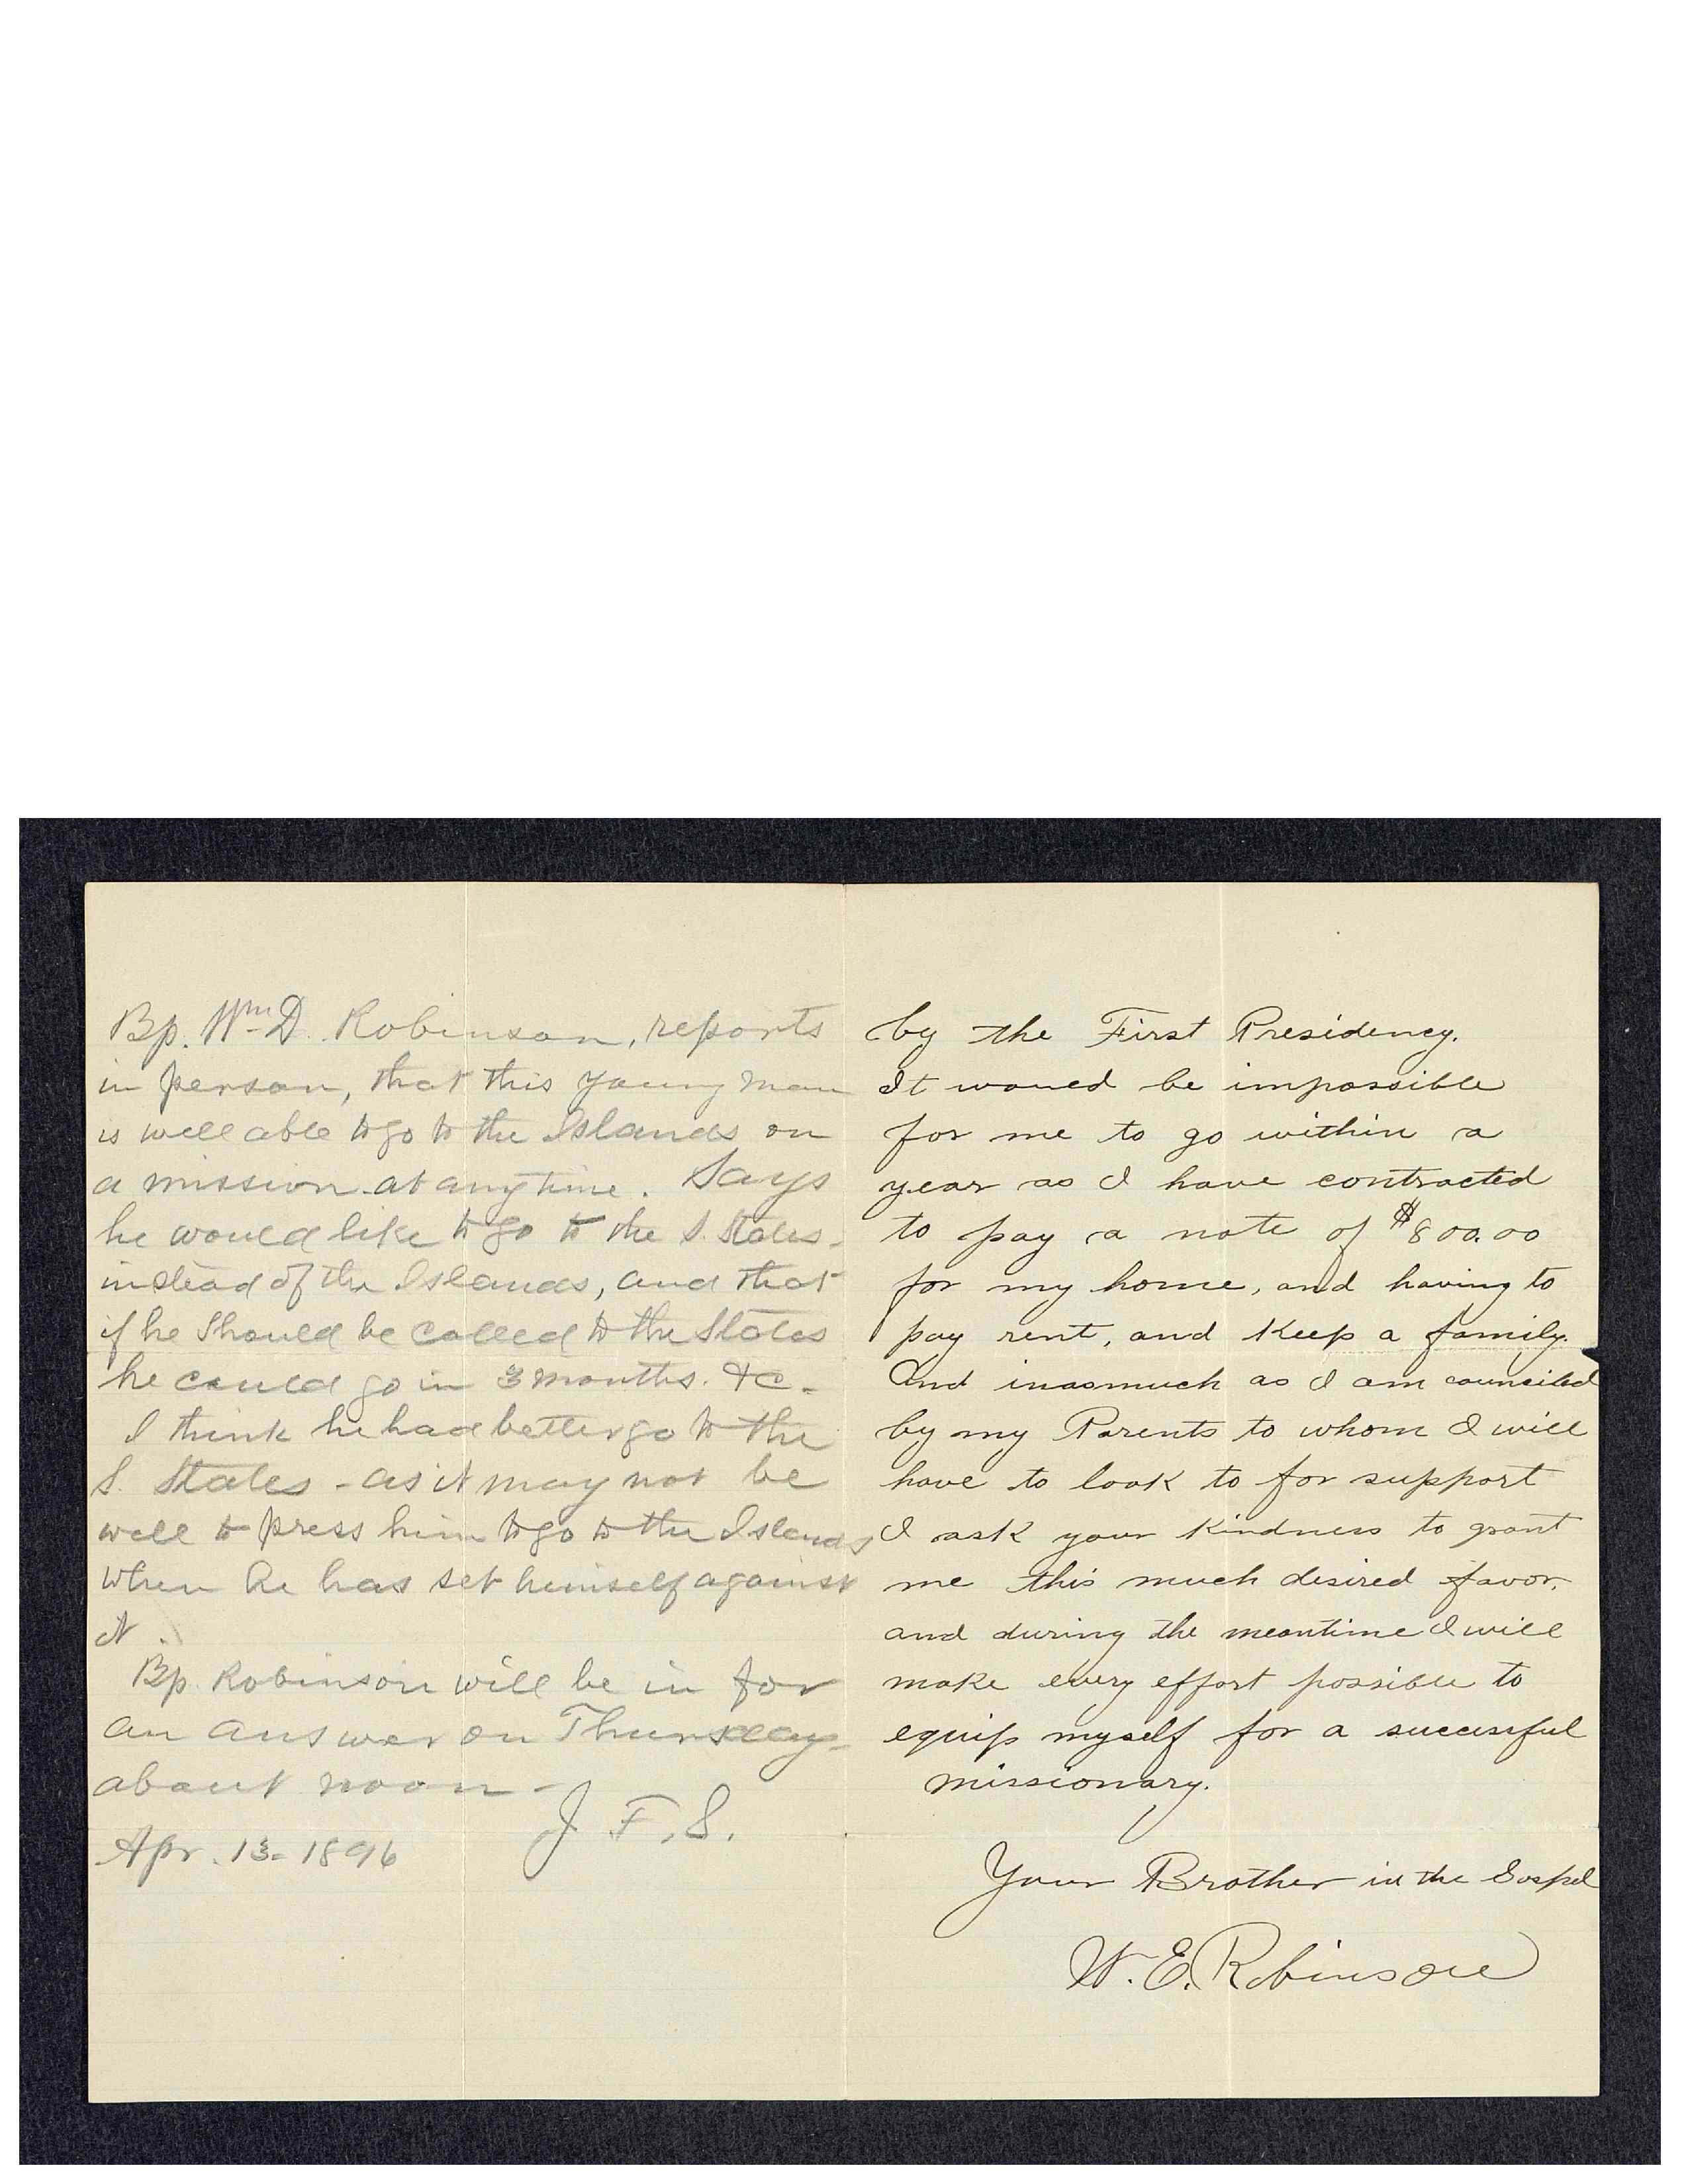 Bp. Wm. D. Robinson, reports
in person, that this young man
is well able to go to the Islands on
a mission at any time. Says
he would like to go to the S. States -
instead of the Islands, and that
if he should be called to the States
he could go in 3 months. &c -
I think he had better go to the
S. States - as it may not be
well to press him to go to the Islands
when he has set himself against
it.
Bp. Robinson will be in for
an answer on Thursday
about noon -
J. F. S.
Apr. 13 - 1896
by the First Presidency.
It would be impossible
for me to go within a
year as I have contracted
to pay a note of $800.00
for my home, and having to
pay rent, and keep a family.
And inasmuch as I am counciled
by my Parents to whom I will
have to look to for support
I ask your kindness to grant
me this much desired favor.
and during the meantime I will
make every effort possible to
equip myself for a successful
missionary.
Your Brother in the Gospel
W. E. Robinson